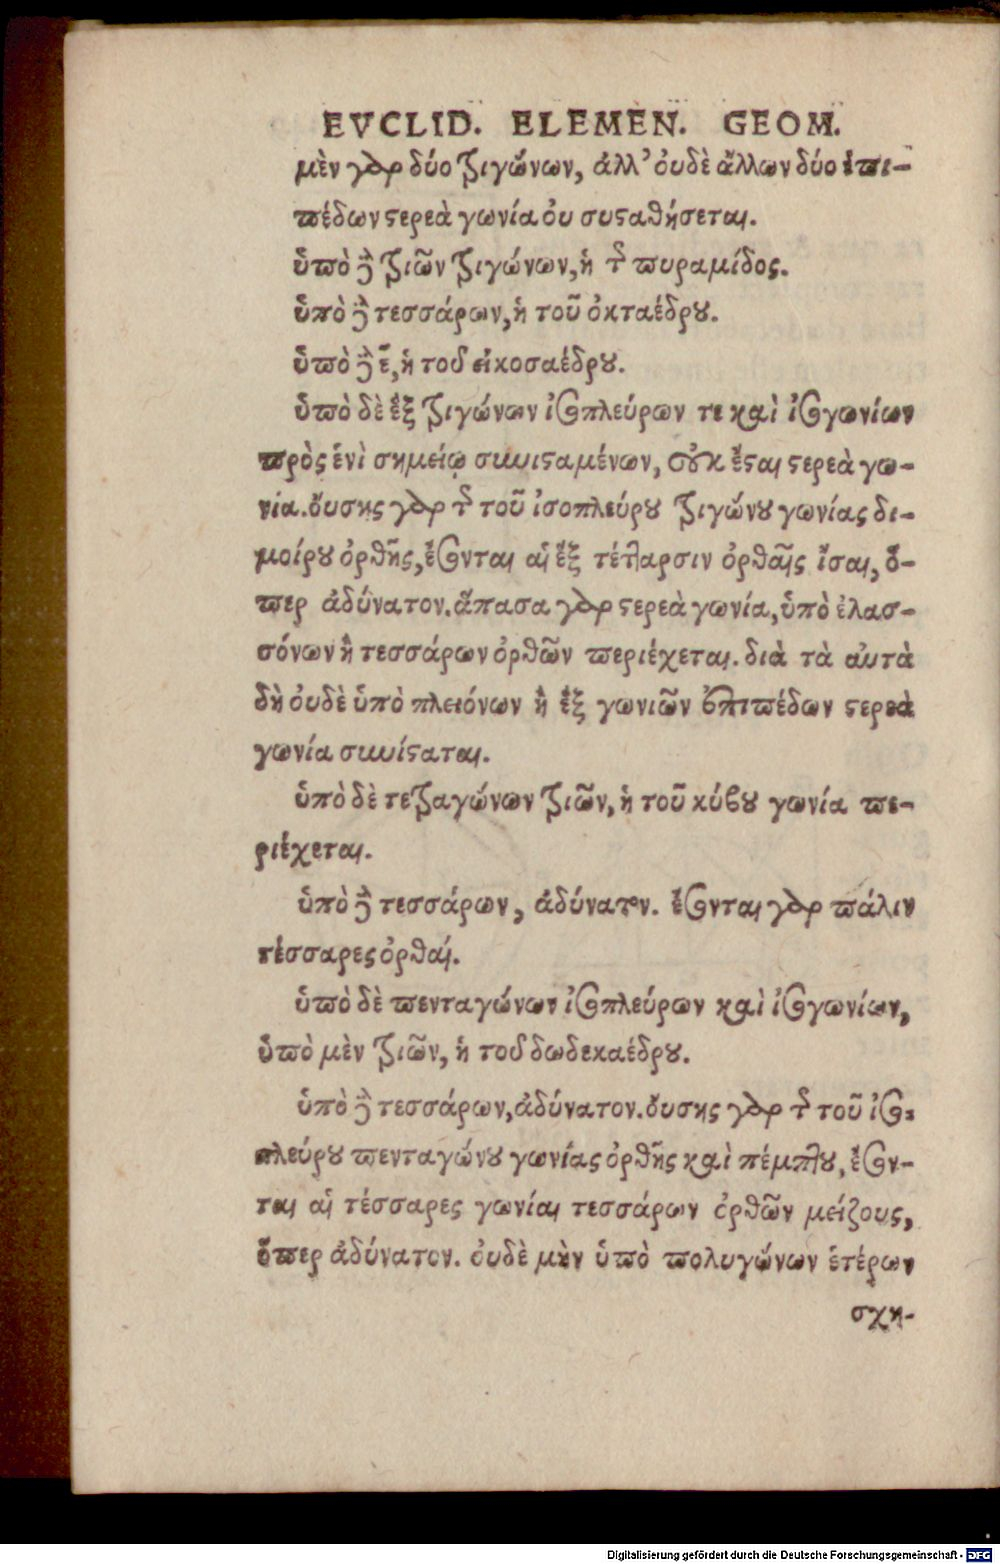 EVCLID. ELEMEN. GEOM.
μὲν γὰρ δύο τριγώνων, ἀλλ' οὐδὲ ἄλλων δύο ἐπι-
πέδων στερεὰ γωνία οὐ συσταθήσεται.
ὑπὸ δὲ τριῶν τριγώνων, ἡ τῆς πυραμίδος.
ὑπὸ δὲ τεσσάρων, ἡ τοῦ ὀκταέδρου.
ὑπὸ δὲ ε̄, ἡ τοῦ εἰκοσαέδρου.
ὑπὸ δὲ ἓξ τριγώνων ἰσοπλεύρων τε καὶ ἰσογωνίων
πρὸς ἑνὶ σημείῳ συνισταμένων, οὐκ ἔσται στερεὰ γω-
νία. οὔσης γὰρ τῆς τοῦ ἰσοπλεύρου τριγώνου γωνίας δι-
μοίρου ὀρθῆς, ἔσονται αἱ ἓξ τέτταρσιν ὀρθαῖς ἴσαι, ὅ-
περ ἀδύνατον. ἅπασα γὰρ στερεὰ γωνία, ὑπὸ ἐλασ-
σόνων ἢ τεσσάρων ὀρθῶν περιέχεται. διὰ τὰ αὐτὰ
δὴ οὐδὲ ὑπὸ πλειόνων ἢ ἓξ γωνιῶν ἐπιπέδων στερεὰ
γωνία συνίσταται.
ὑπὸ δὲ τετραγώνων τριῶν, ἡ τοῦ κύβου γωνία πε-
ριέχεται.
ὑπὸ δὲ τεσσάρων, ἀδύνατον. ἔσονται γὰρ πάλιν
τέσσαρες ὀρθαί.
ὑπὸ δὲ πενταγώνων ἰσοπλεύρων καὶ ἰσογωνίων,
ὑπὸ μὲν τριῶν, ἡ τοῦ δωδεκαέδρου.
ὑπὸ δὲ τεσσάρων, ἀδύνατον. οὔσης γὰρ τῆς τοῦ ἰσο-
πλεύρου πενταγώνου γωνίας ὀρθῆς καὶ πέμπτου, ἔσον-
ται αἱ τέσσαρες γωνίαι τεσσάρων ὀρθῶν μείζους,
ὅπερ ἀδύνατον. οὐδὲ μὴν ὑπὸ πολυγώνων ἑτέρων
σχη-
Digitalisierung gefördert durch die Deutsche Forschungsgemeinschaft - DFG